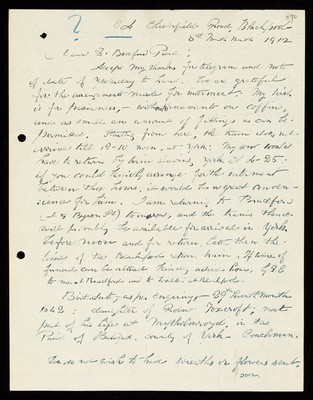 390
?
6A Chesterfield Road, Blackpool
5th Month 1912
Dear D. Bedford Pierce,
Accept my thanks for telegram and note
of date of yesterday to hand. We are grateful
for the arrangements made for interment. My wish
is for plainness, - without ornaments on coffin,
and as small an amount of fittings as can be
permitted. Starting from here, the train does not
arrive till 12-10 noon, at York. My son would
have to return by train leaving York at 4-25.
if you could kindly arrange for the interment
between those hours, it would be a great conven-
ience for him. I am returning to Bradford
(at 8 Byron St) tomorrow, and the trains thence
will be available for arrival in York
before noon and for return later than the
of the Blackpool train. If time of
funeral can be altered kindly advise home,
to meet at Bradford and to
Birthdate, as per enquiry - 29th Month
1842: daughter of Foxcroft, most
part of his life at Mytholmroyd, in the
Parish of Halifax, county of York - Coachman.
We do not wish to have wreaths or flowers sent.
over